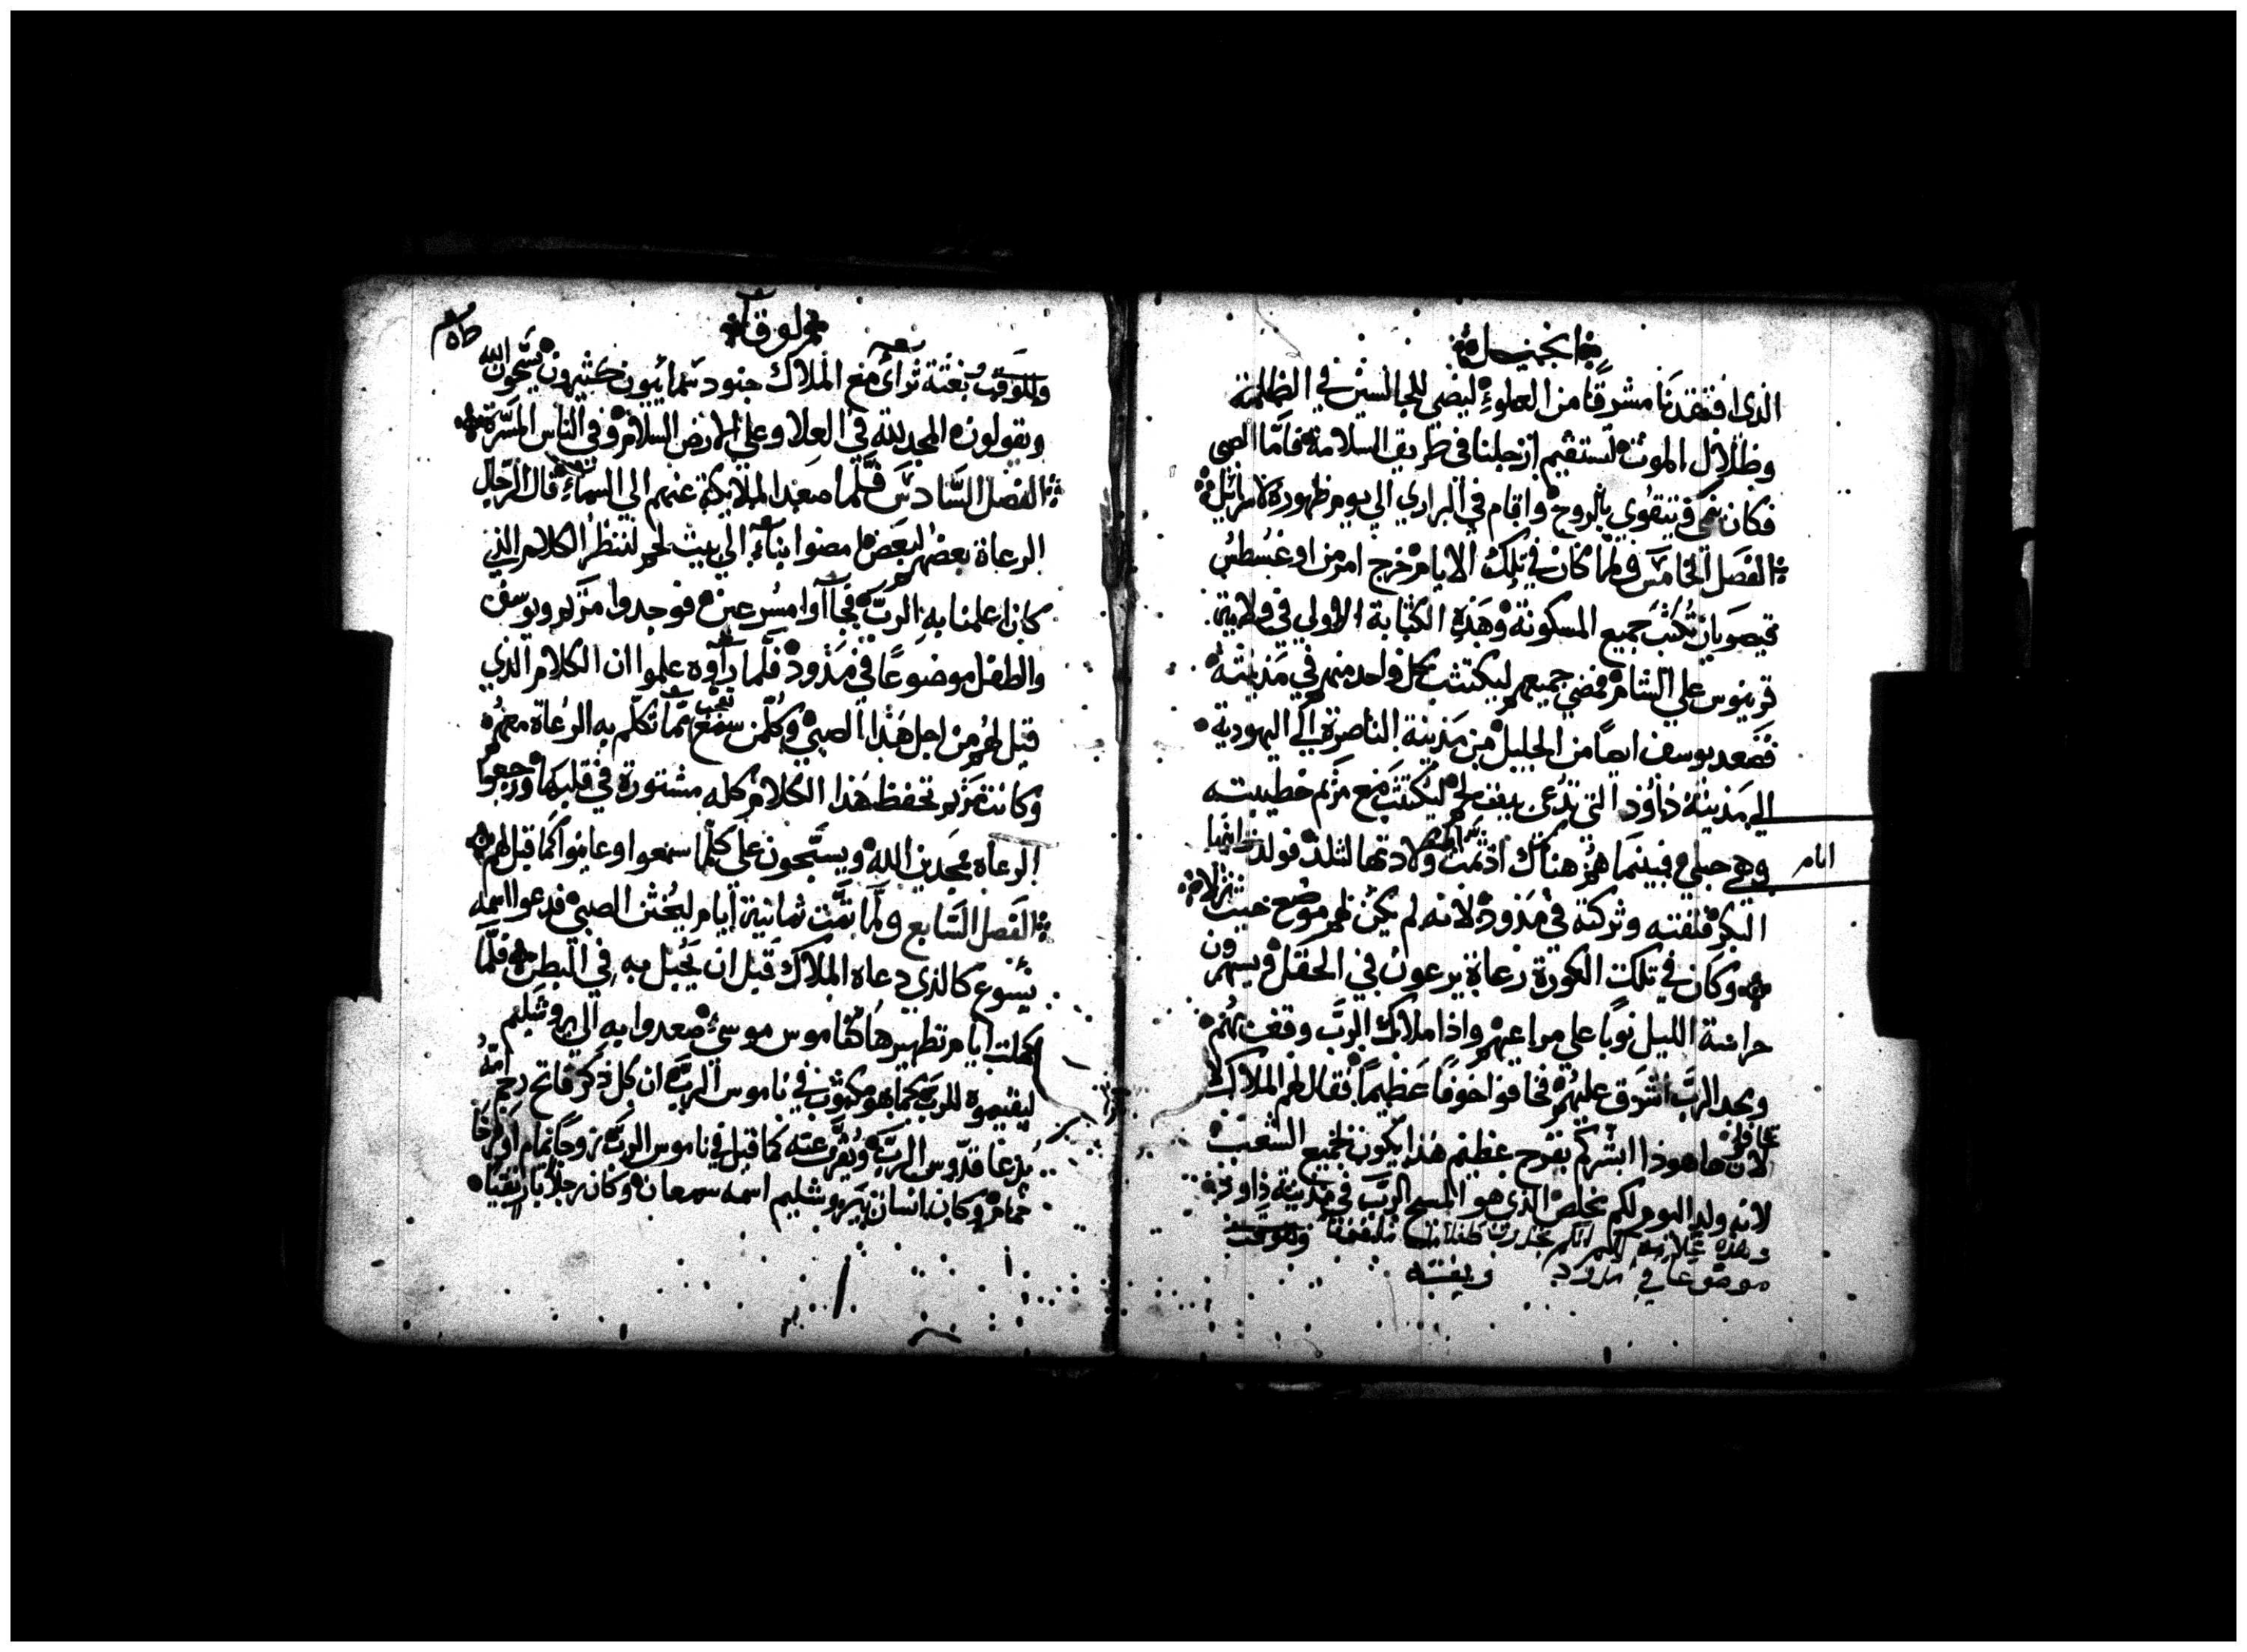 انجيل
الذى افتقدنا مشرقًا من العلوء ليضى للجالسين في الظلمة
وظلال الموت لتستقيم ارجلنا فى طريق السلامة فامّا الصبى
فكان ينمى ويتقوى بالروح واقام في البراري الى يوم ظهوره لاسرائيل
الفصل الخامس ولما كان في تلك الايام خرج امر من اوغسطس
قيصر بان تُكتب جميع المسكونة وهذه الكتابة الاولي في ولاية
قرينوس علي الشام فمضي جميعهم ليكتتب كل واحد منهم في مدينته
فصعد يوسف ايضًا من الجليل من مدينة الناصرة الى اليهودية
الي مدينة داوُد التى تدعى بيت لحم ليكتتب مع مريم خطيبته
وهي حبلي فبينما هُمْ هناك اذ تمت ولادتها لتلد فولدت ابنها
ايام
البكر فلفته وتركته في مذود لانه لم يكن لهم موضع حيث نزلا
وكان في تلك الكورة رعاة يرعون في الحقل ويسهرون
حراسة الليل نوبًا علي مراعيهم واذا ملاك الربّ وقف بهُم
ومجد الربّ اشرق عليهُم فخافوا خوفًا عظيمًا فقال لهم الملاك لا
تخافوا
لان هاهوذا ابشركم بفرح عظيم هذا يكون لجميع الشعب
لانه ولد اليوم لكم مخلص الذى هو المسيح الربّ في مدينة داود
وهذه علامة لكم انكم تجدون طفلا ملففا
موضوعا في مذود وبغتة
لوقا
وللوقت بغتة تراى مع الملاك جنود سمائيون كثيرون يسبّحون الله
ويقولون المجد لله في العلا وعلي الارض السلام وفي الناس المسَرّة
الفصل السّادس فلّما صعد الملايكة عنهم الي السماء قال الرجال
الرعاة بعضهم لبعض امضوا بناء الي بيت لحم لننظر الكلام الذي
كان اعلمنا به الربّ فجاآوا مسُرعين فوجدوا مريم ويوسف
والطفل موضوعًا في مذود فلّما رآوه علموا ان الكلام الذي
قيل لهُم من اجل هذا الصبي وكلّمن سمع تعجب ممّا تكلّم به الرعاة معهُم
وكانت مريم تحفظ هذا الكلام كله مشتورة في قلبها ورجعوا
الرعاة يمجدين الله ويسبّحون على كلّما سمعوا وعاينوا كما قيل لهم
الفصل السّابع ولمّا تمّت ثمانية ايام ليُختن الصبي فدعوا اسمه
يسُوع كالذي دعاه الملاك قبل ان يُحبل به في البطن فلمّا
كملت ايام تطهيرها كناموس موسىٰ صعدوا به الي يروشليم
ليقيموه للربّ كما هو مكتوب في ناموس الربّ ان كل ذكر فاتح رحم امّه
يدعا قدّوس الربّ ويُقرّب عنه كما قيل في ناموس الربّ زوجًا يمام او فرخا
حمام وكان انسان بيروشليم اسمه سمعان وكان رجلاً بارًا تقيًا